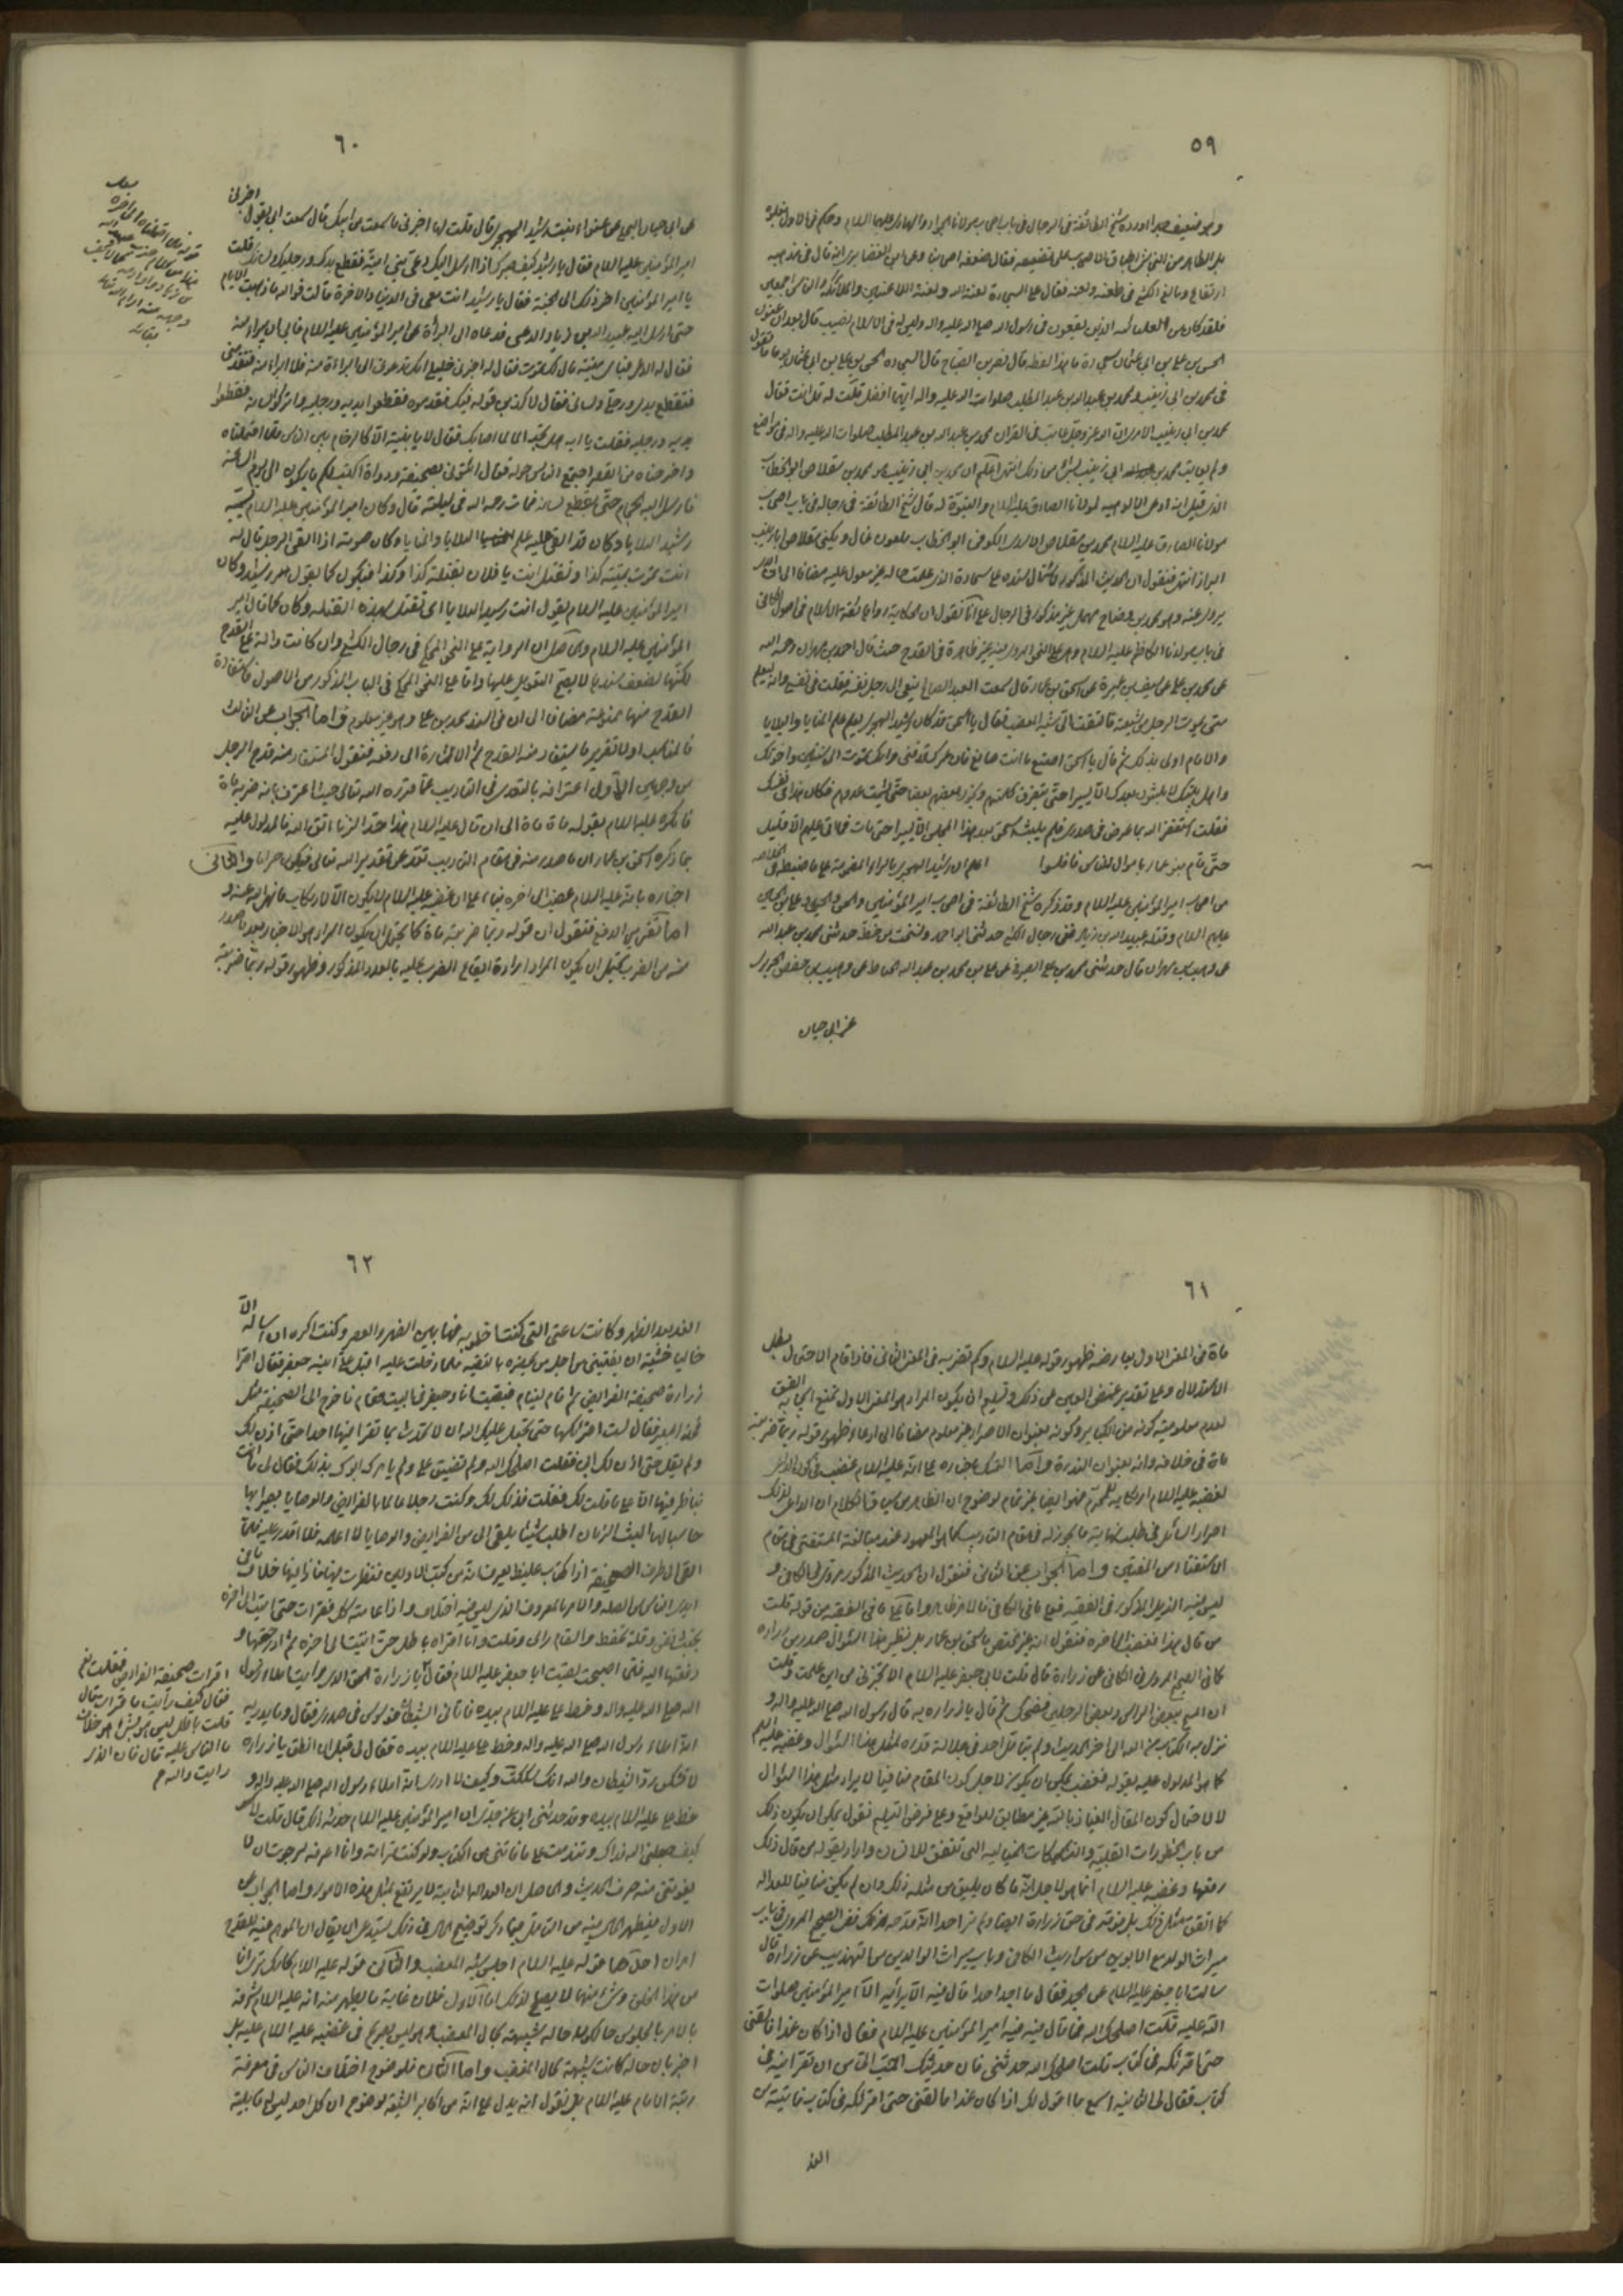 ٥٩
وهو ضعيف اورده شيخ الطائفة في الرجال في باب اصحاب مولانا الجواد والهادي عليهما السلام وحكم في الاول بغلوه
بل الظاهر من النجاشي اطباق الاصحاب على تضعيفه فقال ضعفه اصحابنا وعن ابن الغضايري انه قال في مذهبه
ارتفاع وبالغ الكشي في طعنه ولعنه فقال على السجادة لعنة الله ولعنة اللاعنين والملائكة والناس اجمعين
فلقد كان من العليائية الذين يقعون في رسول الله صلى الله عليه واله وليس له في الاسلام نصيب قال بعد ان عنون
الحسن بن علي بن ابي عثمان سجادة ما هذا لفظه قال نصر بن الصباح قال السجادة الحسن بن علي بن ابي عثمان يوما ما تقول
في محمد بن ابي زينب ومحمد بن عبد الله بن عبد المطلب صلوات الله عليه واله ايهما افضل قلت له قل انت فقال
محمد بن ابي زينب الا ترى ان الله عز وجل عاتب في القران محمد بن عبد الله بن عبد المطلب صلوات الله عليه واله في مواضع
ولم يعاتب محمد بن ابي زينب بشيء من ذلك انتهى اعلم ان محمد بن ابي زينب هو محمد بن مقلاص ابو الخطاب
الذي قيل انه ادعى الالوهية لمولانا الصادق عليه السلام والنبوة له قال شيخ الطائفة في رجاله في باب اصحاب
مولانا الصادق عليه السلام محمد بن مقلاص الاسدي الكوفي ابو الخطاب ملعون غال ويكنى مقلاص ابا زينب
البزاز انتهى فنقول ان الحديث المذكور لاشتمال سنده على سجادة الذي علمت حاله غير معول عليه مضافا الى ان الذي
يروي عنه وهو محمد بن وضاح مهمل غير مذكور في الرجال على انا نقول ان الحكاية رواها ثقة الاسلام في اصول الكافي
في باب مولد مولانا الكاظم عليه السلام وهي على النحو المروي فيه غير ظاهرة في القدح حيث قال احمد بن مهران رحمه الله
عن محمد بن علي عن سيف بن عميرة عن اسحق بن عمار قال سمعت العبد الصالح ينعى الى رجل نفسه فقلت في نفسي وانه ليعلم
متى يموت الرجل من شيعته فالتفت الي شبه المغضب فقال يا اسحق قد كان رشيد الهجري يعلم علم المنايا والبلايا
والامام اولى بذلك ثم قال يا اسحق اصنع ما انت صانع فان عمرك قد فنى وانك تموت الى سنتين واخوتك
واهل بيتك لا يلبثون بعدك الا يسيرا حتى تتفرق كلمتهم ويخون بعضهم بعضا حتى يشمت عدوهم فكان هذا في نفسك
فقلت استغفر الله بما عرض في صدري فلم يلبث اسحق بعد هذا المجلس الا يسيرا حتى مات فما اتى عليهم الا قليل
حتى قام بنو عمار باموال الناس فافلسوا اعلم ان رشيد الهجري بالراء المضمومة على ما ضبطه في الخلاصة
من اصحاب امير المؤمنين عليه السلام وقد ذكره شيخ الطائفة في اصحاب امير المؤمنين والحسن والحسين وعلي بن الحسين
عليهم السلام وقتله عبيد الله بن زياد ففي رجال الكشي حدثني ابو احمد ونسخت من خطه حدثني محمد بن عبد الله
عن وهيب بن مهران قال حدثني محمد بن علي الصيرفي عن علي بن محمد بن عبد الله الحناط عن وهيب بن حفص الجريري
عن ابي حيان
٦٠
عن ابي حيان البجلي عن قنوا بنت رشيد الهجري قال قلت لها اخبرني ما سمعت من ابيك قال سمعت ابي يقول اخبرني
امير المؤمنين عليه السلام فقال يا رشيد كيف صبرك اذا ارسل اليك دعي بني امية فقطع يديك ورجليك ولسانك قلت
يا امير المؤمنين اخر ذلك الى الجنة فقال يا رشيد انت معي في الدنيا والاخرة قالت فو الله ما ذهبت الايام
حتى ارسل اليه عبيد الله بن زياد الدعي فدعاه الى البراءة عن امير المؤمنين عليه السلام فابى ان يبرأ منه
فقال له الدعي فباي ميتة قال لك تموت فقال له اخبرني خليلي انك تدعوني الى البراءة منه فلا ابرأ منه فتقدمني
فتقطع يدي ورجلي ولساني فقال لاكذبن قوله فيك فقدموه فقطعوا يديه ورجليه واتركوا لسانه فقطعوا
يديه ورجليه فقلت يا ابه هل تجد الما لما اصابك فقال لا يا بنية الا كالزحام بين الناس فلما احتملناه
واخرجناه من القصر اجتمع الناس حوله فقال ائتوني بصحيفة ودواة اكتب لكم ما يكون الى يوم الساعة
فارسل اليه الحجام حتى قطع لسانه فمات رحمه الله في ليلته قال وكان امير المؤمنين عليه السلام يسميه
رشيد البلايا وكان قد القى عليه علم البلايا والمنايا وكان حيوته اذا القى الرجل قال له
انت تموت بميتة كذا وتقتل انت يا فلان بقتلة كذا وكذا فيكون كما يقول رشيد وكان
امير المؤمنين عليه السلام يقول انت رشيد البلايا اي تقتل بهذه القتلة وكان كما قال امير
المؤمنين عليه السلام والحاصل ان الرواية على النحو المحكي في رجال الكشي وان كانت دالة على القدح
لكنها لضعف سندها لا يصح التعويل عليها واما على النحو المحكي في الباب المذكور من الاصول فاستفادة
القدح منها ممنوعة مضافا الى ان في السند محمد بن علي وهو غير معلوم واما الجواب عن الثالث
فالمناسب اولا تقرير ما يستفاد منه القدح ثم الاشارة الى دفعه فنقول المستفاد منه قدح الرجل
من وجهين الاول اعترافه بالتعدي في التاديب عما قرره الله تعالى حيث اعترف بانه ضربه مائة
فانكره عليه السلام بقوله مائة مائة الى ان قال عليه السلام هذا حد الزنا اتق الله فالمدلول عليه
بما ذكره اسحق بن عمار ان ما صدر منه في مقام التاديب تعد عن تقدير الله تعالى فيكون حراما والثاني
اخباره بانه عليه السلام غضب الى اخره بناء على ان غضبه عليه السلام لا يكون الا لارتكاب ما نهى الله عنه و
اما تقرير الدفع فنقول ان قوله ربما ضربته مائة كما يحتمل ان يكون المراد هو الاخبار بعدد ما صدر
منه من الضرب يحتمل ان يكون المراد ارادة ايقاع الضرب عليه بالعدد المذكور وظهور قوله ربما ضربته
٦١
مائة في المعنى الاول يعارضه ظهور قوله عليه السلام وكم تضربه في المعنى الثاني فاذا قام الاحتمال بطل
الاستدلال وعلى تقدير غض العين عن ذلك وتسليم ان يكون المراد هو المعنى الاول نمنع ايجابه الفسق
لعدم معلومية كونه من الكباير وكونه بعنوان الاصرار غير معلوم مضافا الى ادعاء ظهور قوله ربما ضربته
مائة في خلافه وانه بعنوان الندرة واما التمسك باخباره على انه عليه السلام غضب في كون الداعي
لغضبه عليه السلام ارتكابه للمحرم فهو ايضا غير تام لوضوح ان الظاهر من سياق الكلام ان الداعي لذلك
اصرار السائل في طلب نهاية ما يجوز له في مقام التاديب كما هو المعهود عند مبالغة المستفتي في مقام
الاستفتاء من المفتين واما الجواب عن الثاني فنقول ان الحديث المذكور مروي في الكافي و
ليس فيه الذيل المذكور في الفقيه فعلى ما في الكافي فالامر ظاهر واما على ما في الفقيه من قوله قلت
من قال هذا فغضب الى اخره فنقول انه غير مختص باسحق بن عمار بل نظير هذا السؤال صدر من زرارة
كما في الصحيح المروي في الكافي عن زرارة قال قلت لابي جعفر عليه السلام الا تخبرني من اين علمت وقلت
ان المسح ببعض الراس وبعض الرجلين فضحك ثم قال يا زرارة قال رسول الله صلى الله عليه واله و
نزل به الكتاب من الله الى اخر الحديث ولم يتامل احد في جلالة قدره لمثل هذا السؤال وغضبه عليه السلام
كما هو المدلول عليه بقوله فغضب يمكن ان يكون لاجل كون المقام منافيا لايراد مثل هذا السؤال
لا لاحتمال كون المقال العياذ بالله غير مطابق للواقع وعلى فرض التسليم نقول يمكن ان يكون ذلك
من باب الخطورات القلبية والتشكيكات الخيالية التي تتفق للانسان واراد بقوله من قال ذلك
رفعها وغضبه عليه السلام انما هو لاجل انه ما كان يليق من مثله ذلك وان لم يكن منافيا للعدالة
كما اتفق مثل ذلك بل فوقه في حق زرارة ايضا ولم نر احدا انه قدحه بذلك ففي الصحيح المروي في باب
ميراث الولد مع الابوين من مواريث الكافي وباب ميراث الوالدين من التهذيب عن زرارة قال
سالت ابا جعفر عليه السلام عن الجد فقال ما اجد احدا قال فيه الا برايه الا امير المؤمنين صلوات
الله عليه قلت اصلحك الله فما قال فيه امير المؤمنين عليه السلام فقال اذا كان غدا فالقني
حتى اقرئكه في كتاب قلت اصلحك الله حدثني فان حديثك احب الي من ان تقرأنيه في
كتاب فقال لي الثانية اسمع ما اقول لك اذا كان غدا فالقني حتى اقرئكه في كتاب فاتيته من
الغد
٦٢
الغد بعد الظهر وكانت ساعتي التي كنت اخلو به فيها بين الظهر والعصر وكنت اكره ان اساله الا
خاليا خشية ان يفتيني من اجل من يحضره بالتقية فلما دخلت عليه اقبل على ابنه جعفر فقال اقرأ
زرارة صحيفة الفرايض ثم قام لينام فبقيت انا وجعفر في البيت فقام فاخرج الي صحيفة مثل
فخذ البعير فقال لست اقرئكها حتى تجعل عليك الله ان لا تحدث بما تقرأ فيها احدا حتى اذن لك
ولم يقل حتى ياذن لك ابي فقلت اصلحك الله ولم تضيق علي ولم يامرك ابوك بذلك فقال لي ما انت
بناظر فيها الا على ما قلت لك فقلت فذلك لك وكنت رجلا عالما بالفرايض والوصايا بصيرا بها
حاسبا لها البث الزمان اطلب شيئا يلقى الي من الفرايض والوصايا لا اعلمه فلا اقدر عليه فلما
القى الي طرف الصحيفة اذا كتاب غليظ يعرف انه من كتب الاولين فنظرت فيها فاذا فيها خلاف ما في
ايدي الناس من الصلة والامر بالمعروف الذي ليس فيه اختلاف واذا عامته كذلك فقرات حتى اتيت الى اخره
بخبث نفس وقلة تحفظ واسقام راي وقلت وانا اقرأه باطل حتى اتيت الى اخره ثم ادرجتها و
دفعتها اليه فلما اصبحت لقيت ابا جعفر عليه السلام فقال لي يا زرارة الحق الذي رايت املاء رسول
الله صلى الله عليه واله وخط علي عليه السلام بيده فاتاني الشيطان فوسوس في صدري فقال وما يدريه
انه املاء رسول الله صلى الله عليه واله وخط علي عليه السلام بيده فقال لي قبل ان انطق يا زرارة
لا تشكن ود الشيطان والله انك شككت وكيف لا ادري انه املاء رسول الله صلى الله عليه واله و
خط علي عليه السلام بيده وقد حدثني ابي عن جدي ان امير المؤمنين عليه السلام حدثه ذلك قال قلت لا
كيف جعلني الله فداك وتندمت على ما فاتني من الكتاب ولو كنت قراته وانا اعرفه لرجوت ان لا
يفوتني منه حرف الحديث والحاصل ان العدالة الثابتة لا يرتفع بمثل هذه الامور واما الجواب عن
الاول فيظهر الحال فيه من التامل فيما ذكر توضيح الحال في ذلك يستدعي ان يقال ان الموهم فيه للقدح
امران احدهما قوله عليه السلام اجلس شبه المغضب والثاني قوله عليه السلام كانك ترى انا
من هذا الخلق وشيء منهما لا يصلح لذلك اما الاول فلان غاية ما يظهر منه انه عليه السلام شرفه
بالامر بالجلوس حال كون حاله شبيهة بحال المغضب وهو ليس بصريح في غضبه عليه السلام عليه بل
اخبر بان حاله كانت شبيهة بحال المغضب واما الثاني فلوضوح اختلاف الناس في معرفة
رتبة الامام عليه السلام بل نقول انه يدل على انه من اكابر الشيعة لوضوح ان كل احد ليس له قابلية
اقرات صحيفة الفرايض فقلت نعم
فقال كيف رايت ما قرات قال
قلت باطل ليس بشيء هو خلاف
ما الناس عليه قال فان الذي
رايت والله هو